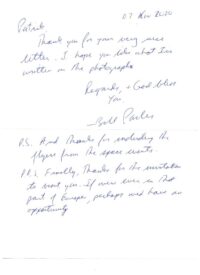 Patrick
Thank you for your very nice
letter. I hope you like what I've
written on the photographs
Regards, + God bless
You
Bill
P.S. And thanks for including the
flyers from the space events.
P.P.S. Finally, thanks for the invitation
to visit you. If we're ever in that
part of Europe, perhaps we'd have an
opportunity